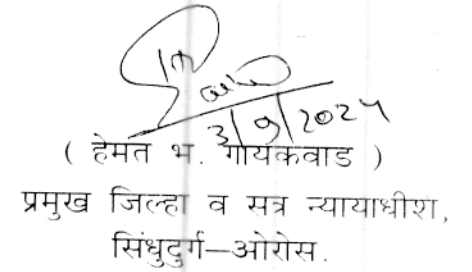 3/9/2024
( हेमत भ. गायकवाड )
प्रमुख जिल्हा व सत्र न्यायाधीश,
सिंधुदुर्ग–ओरोस.